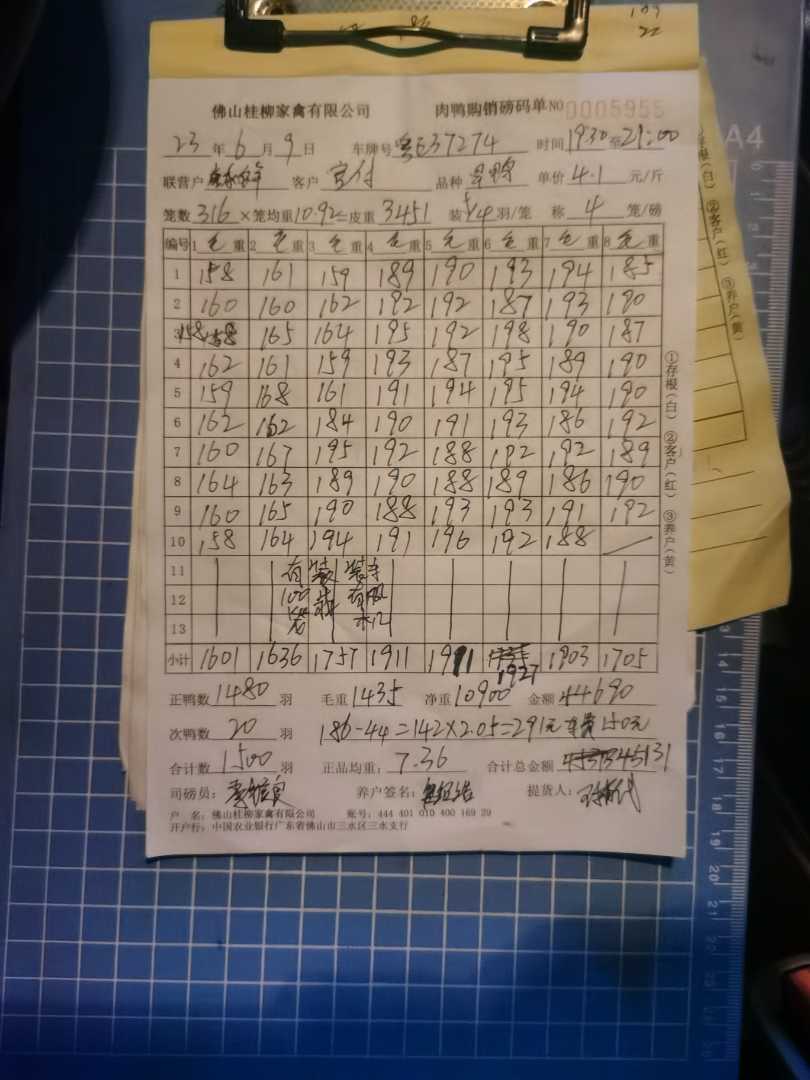 佛山桂柳家禽有限公司 肉鸭购销磅码单 NO 0005955
23 年 6 月 9 日 车牌号 粤E37274 时间 1930 至 21:00
联营户 客户 品种 单价 4.1 元/斤
笼数 316 × 笼均重 10.92 = 皮重 3451 装 5/4 羽/笼 称 4 笼/磅
编号 1 毛 重 2 毛 重 3 毛 重 4 毛 重 5 毛 重 6 毛 重 7 毛 重 8 毛 重
1 158 161 159 189 190 193 194 185
2 160 160 162 192 192 187 193 190
3 158 165 164 195 192 198 190 187
4 162 161 159 193 187 195 189 190
5 159 168 161 191 194 195 194 190
6 162 162 184 190 191 193 186 192
7 160 167 195 192 188 192 192 189
8 164 163 189 190 188 189 186 190
9 160 165 190 188 193 193 191 192
10 158 164 194 191 196 192 188
11
12
13
小计 1601 1636 1757 1911 1911 1927 1903 1705
正鸭数 1480 羽 毛重 1435 净重 10900 金额 44690
次鸭数 20 羽 186-44=142×2.05=291元 车费150元
合计数 1500 羽 正品均重: 7.36 合计总金额 45131
司磅员: 养户签名: 提货人:
户 名: 佛山桂柳家禽有限公司 账号: 444 401 010 400 169 29
开户行: 中国农业银行广东省佛山市三水区三水支行
①存根(白) ②客户(红) ③养户(黄)
①存根(白) ②客户(红) ③养户(黄)
A4